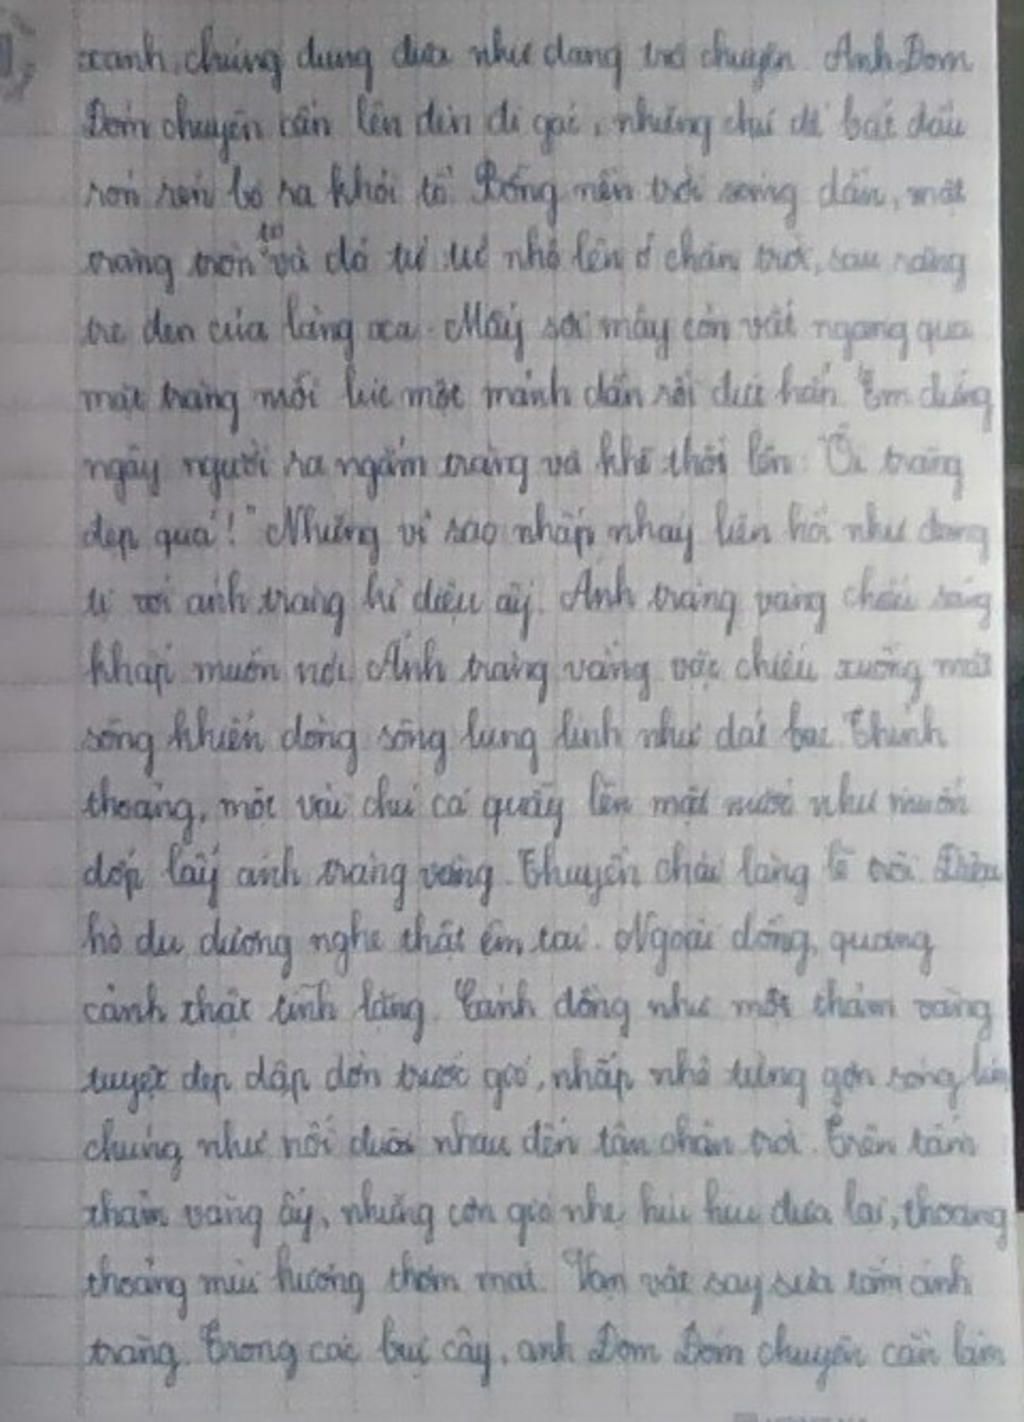 xanh, chúng đung đưa như đang trò chuyện. Anh Đom
Đóm chuyên cần lên đèn đi gác, những chú dế bắt đầu
rón rén bò ra khỏi tổ. Bỗng nền trời sáng dần, mặt
trăng tròn to và đỏ từ từ nhô lên ở chân trời, sau rặng
tre đen của làng xa. Mấy sợi mây còn vắt ngang qua
mặt trăng mỗi lúc một mảnh dần rồi đứt hẳn. Em đứng
ngây người ra ngắm trăng và khẽ thốt lên: "Ôi trăng
đẹp quá!" Những vì sao nhấp nháy liên hồi như đang
tị với ánh trăng kì diệu ấy. Ánh trăng vàng chiếu sáng
khắp muôn nơi. Ánh trăng vàng vặc chiếu xuống mặt
sông khiến dòng sông lung linh như dát bạc. Thỉnh
thoảng, một vài chú cá quẫy lên mặt nước như muốn
đớp lấy ánh trăng vàng. Thuyền chài lặng lẽ trôi. Điệu
hò du dương nghe thật êm tai. Ngoài đồng, quang
cảnh thật tĩnh lặng. Cánh đồng như một thảm vàng
tuyệt đẹp dập dờn trước gió, nhấp nhô từng gợn sóng
chúng như nối đuôi nhau đến tận chân trời. Trên tấm
thảm vàng ấy, những cơn gió nhẹ hiu hiu đưa lại, thoang
thoảng mùi hương thơm mát. Vạn vật say sưa tắm ánh
trăng. Trong các bụi cây, anh Đom Đóm chuyên cần làm